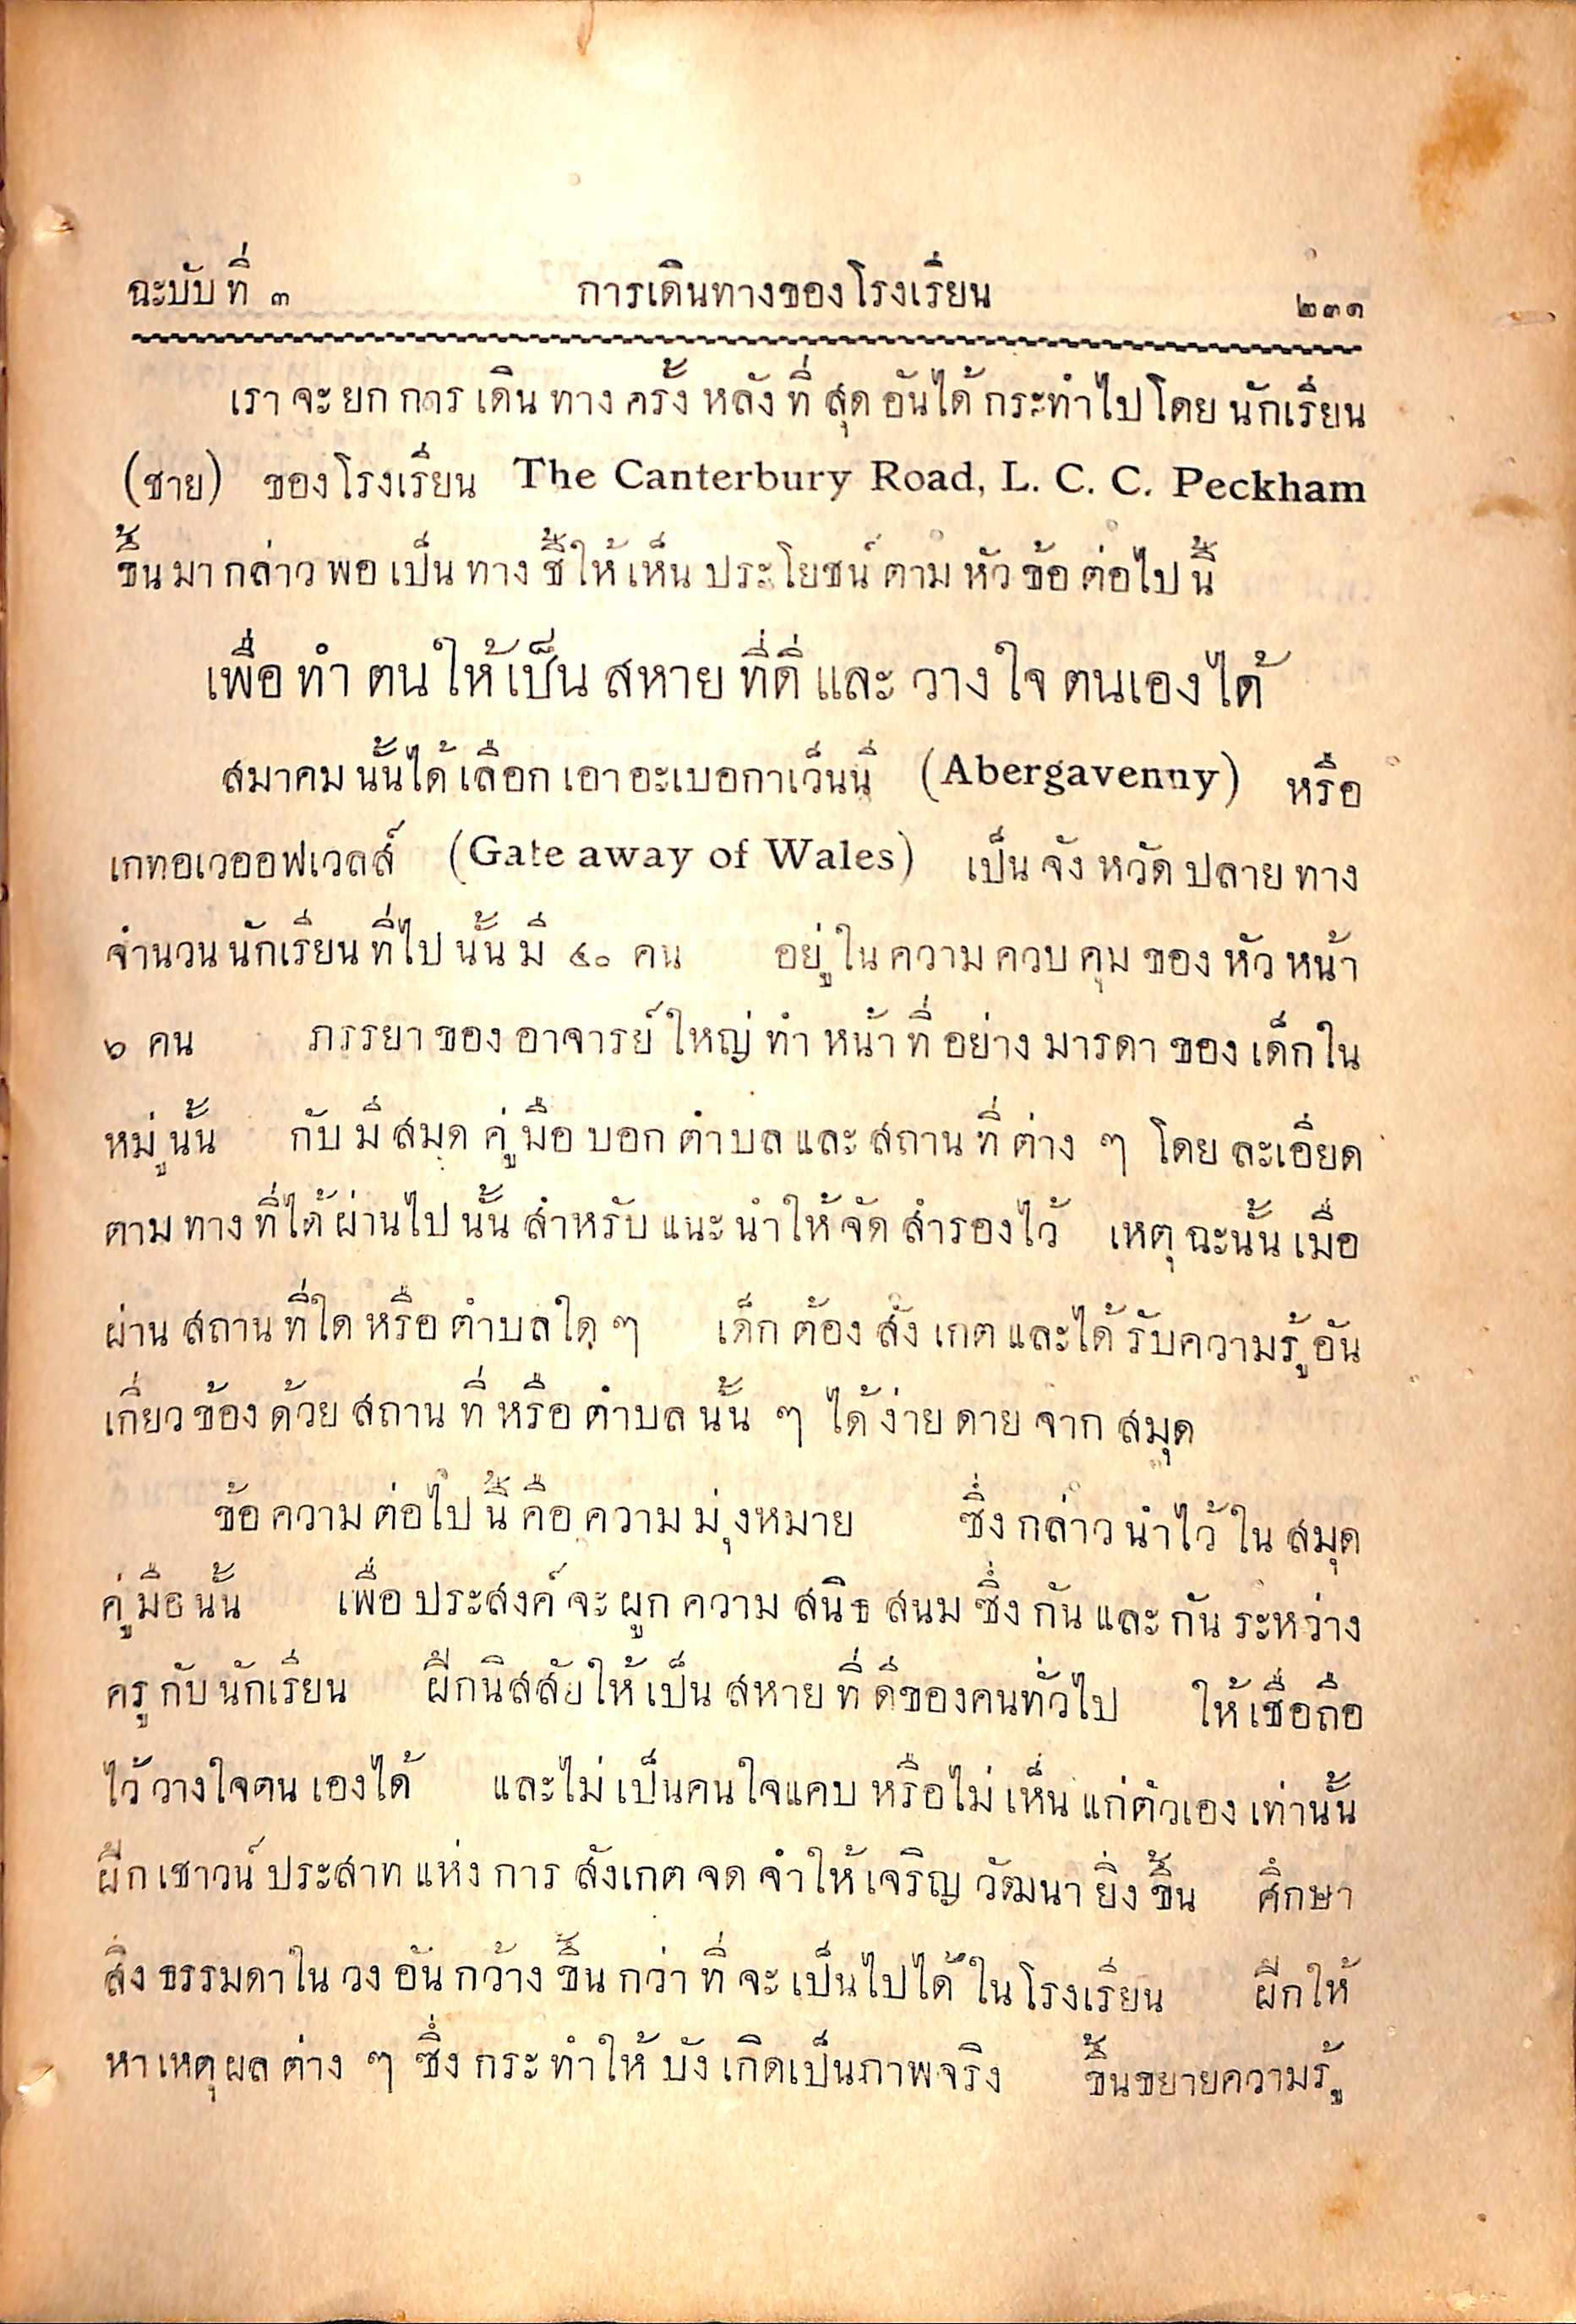 ฉะบับที่ ๓ การเดินทางของโรงเรียน ๒๓๑
เราจะยกการเดินทางครั้งหลังที่สุดอันได้กระทำไปโดยนักเรียน
(ชาย) ของโรงเรียน The Canterbury Road, L. C. C. Peckham
ขึ้นมากล่าวพอเป็นทางชี้ให้เห็นประโยชน์ตามหัวข้อต่อไปนี้
เพื่อทำตนให้เป็นสหายที่ดีและวางใจตนเองได้
สมาคมนั้นได้เลือกเอาอะเบอกาเว็นนี (Abergavenny) หรือ
เกทอเวออฟเวลส์ (Gate away of Wales) เป็นจังหวัดปลายทาง
จำนวนนักเรียนที่ไปนั้นมี ๔๐ คน อยู่ในความควบคุมของหัวหน้า
๖ คน ภรรยาของอาจารย์ใหญ่ทำหน้าที่อย่างมารดาของเด็กใน
หมู่นั้น กับมีสมุดคู่มือบอกตำบลและสถานที่ต่าง ๆ โดยละเอียด
ตามทางที่ได้ผ่านไปนั้นสำหรับแนะนำให้จัดสำรองไว้ เหตุฉะนั้นเมื่อ
ผ่านสถานที่ใดหรือตำบลใด ๆ เด็กต้องสังเกตและได้รับความรู้อัน
เกี่ยวข้องด้วยสถานที่หรือตำบลนั้น ๆ ได้ง่ายดายจากสมุด
ข้อความต่อไปนี้คือความมุ่งหมาย ซึ่งกล่าวนำไว้ในสมุด
คู่มือนั้น เพื่อประสงค์จะผูกความสนิธสนมซึ่งกันและกันระหว่าง
ครูกับนักเรียน ฝึกนิสสัยให้เป็นสหายที่ดีของคนทั่วไป ให้เชื่อถือ
ไว้วางใจตนเองได้ และไม่เป็นคนใจแคบหรือไม่เห็นแก่ตัวเองเท่านั้น
ฝึกเชาวน์ประสาทแห่งการสังเกตจดจำให้เจริญวัฒนายิ่งขึ้น ศึกษา
สิ่งธรรมดาในวงอันกว้างขึ้นกว่าที่จะเป็นไปได้ในโรงเรียน ฝึกให้
หาเหตุผลต่าง ๆ ซึ่งกระทำให้บังเกิดเป็นภาพจริง ขึ้นขยายความรู้